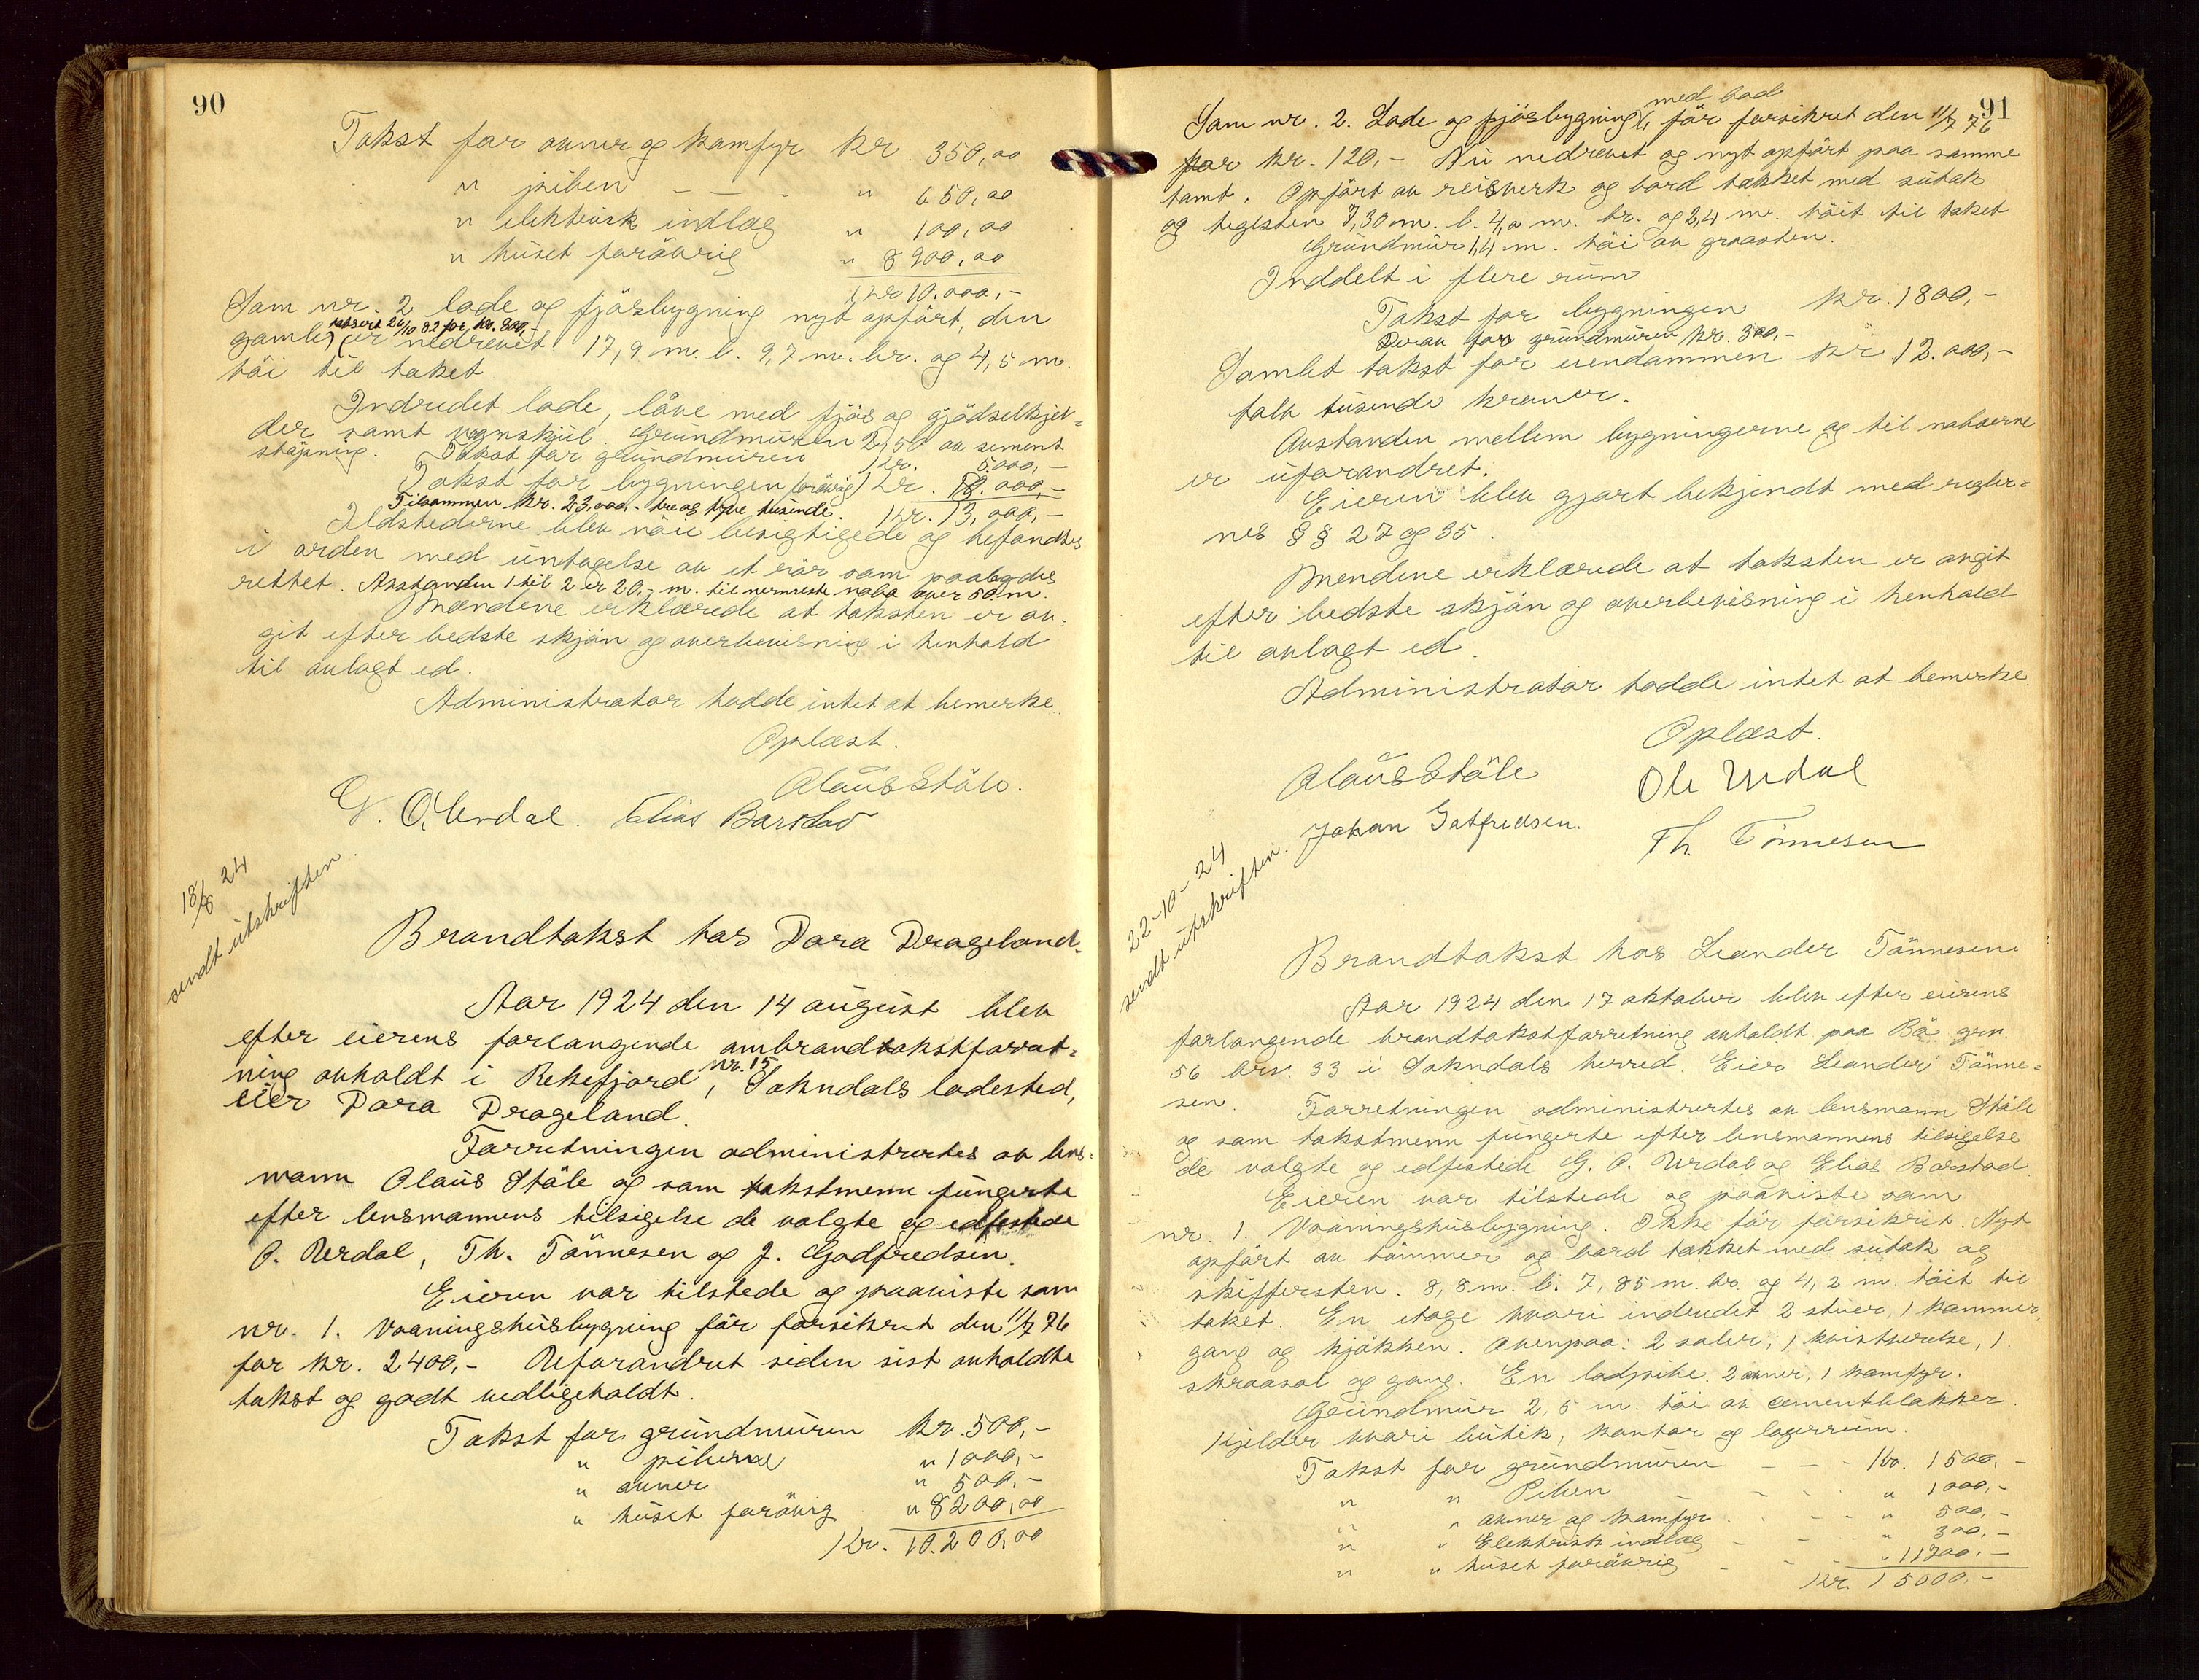 90
Takst for ovner og komfyr kr. 350,00
" piben — — - " 650,00
" elektrisk indlæg " 100,00
" huset forøvrig " 8900,00
Kr 10.000,-
Som nr. 2 lade og fjøsbygning nyt opført, den
taksert 26/10 82 for kr. 800,-
gamle er nedrevet. 17,9 m. l. 9,7 m. br. og 4,5 m.
høi til taket
Indredet lade, låve med fjøs og gjødselkjel-
der samt vognskjul. Grundmuren 2,50 av sement
støpning. Takst for grundmuren kr. 5000,-
Takst for bygningen forøvrig kr. 8.000,-
Tilsammen kr. 23,000.- tre og tyve tusinde. Kr. 13,000,-
Ildstederne blev nøie besigtigede og befandtes
i orden med undtagelse av et rør som paalagdes
rettet. Avstanden 1 til 2 er 20,- m. til nermeste nabo over 50 m.
Mændene erklærede at taksten er av-
git efter bedste skjøn og overbevisning i henhold
til avlagt ed.
Administrator hadde intet at bemerke.
Oplæst.
Olaus Ståle.
G. O. Urdal. Elias Barstad
18/8 24
sendt utskriften.
Brandtakst hos Dora Drageland.
Aar 1924 den 14 august blev
efter eierens forlangende ombrandtakstforret-
ning avholdt i Rekefjord nr. 15, Sokndals ladested,
eier Dora Drageland.
Forretningen administrertes av lens-
mann Olaus Ståle og som takstmenn fungerte
efter lensmannens tilsigelse de valgte og edfestede
O. Urdal, Th. Tønnesen og J. Godfredsen.
Eieren var tilstede og paaviste som
nr. 1. Vaaningshusbygning før forsikret den 11/7 76
for kr. 2400,- Uforandret siden sist avholdte
takst og godt vedligeholdt.
Takst for grundmuren kr. 500,-
" piberne " 1000,-
" ovner " 500,-
" huset forøvrig " 8200,00
Kr. 10.200,00
91
Som nr. 2. Lade og fjøsbygning med bod, før forsikret den 11/7 76
for kr. 120,- Nu nedrevet og nyt opført paa samme
tomt. Opført av reisverk og bord tækket med sutak
og teglsten 7,30 m. l. 4,0 m. br. og 2,4 m. høit til taket
Grundmur 1,4 m. høi av graasten.
Inddelt i flere rum
Takst for bygningen kr. 1800,-
Derav for grundmuren kr. 300,-
Samlet takst for eiendommen kr 12.000,-
tolv tusinde kroner.
Avstanden mellem bygningerne og til naboerne
er uforandret.
Eieren blev gjort bekjendt med regler-
nes §§ 27 og 35.
Mendene erklærede at taksten er avgit
efter bedste skjøn og overbevisning i henhold
til avlagt ed.
Administrator hadde intet at bemerke.
Oplæst.
Olaus Ståle Ole Urdal
Johan Gotfredsen. Th. Tönnesen
22-10-24
sendt utskriften.
Brandtakst hos Leander Tønnesen.
Aar 1924 den 17 oktober blev efter eierens
forlangende brandtakstforretning avholdt paa Bø grn.
56 brn. 33 i Sokndals herred. Eier Leander Tønne-
sen. Forretningen administrertes av lensmann Ståle
og som takstmenn fungerte efter lensmannens tilsigelse
de valgte og edfestede G. O. Urdal og Elias Barstad.
Eieren var tilstede og paaviste som
nr. 1. Vaaningshusbygning. Ikke før forsikret. Nyt
opført av tømmer og bord tækket med sutak og
skiffersten. 8,8 m. l. 7,85 m. br. og 4,2 m. høit til
taket. En etage hvori indredet 2 stuer, 1 kammer,
gang og kjøkken. Ovenpaa: 2 saler, 1 kvistverelse, 1.
skraasal og gang. En lodpibe. 2 ovner, 1 komfyr.
Grundmur 2,5 m. høi av cementblokker.
Kjelder hvori butik, kontor og lagerrum.
Takst for grundmuren - - - kr. 1500,-
" " Piben - - - " 1000,-
" " ovner og komfyr - - - " 500,-
" " Elektrisk indlæg - - - " 300,-
" " huset forøvrig - - " 11700,-
Kr. 15000,-